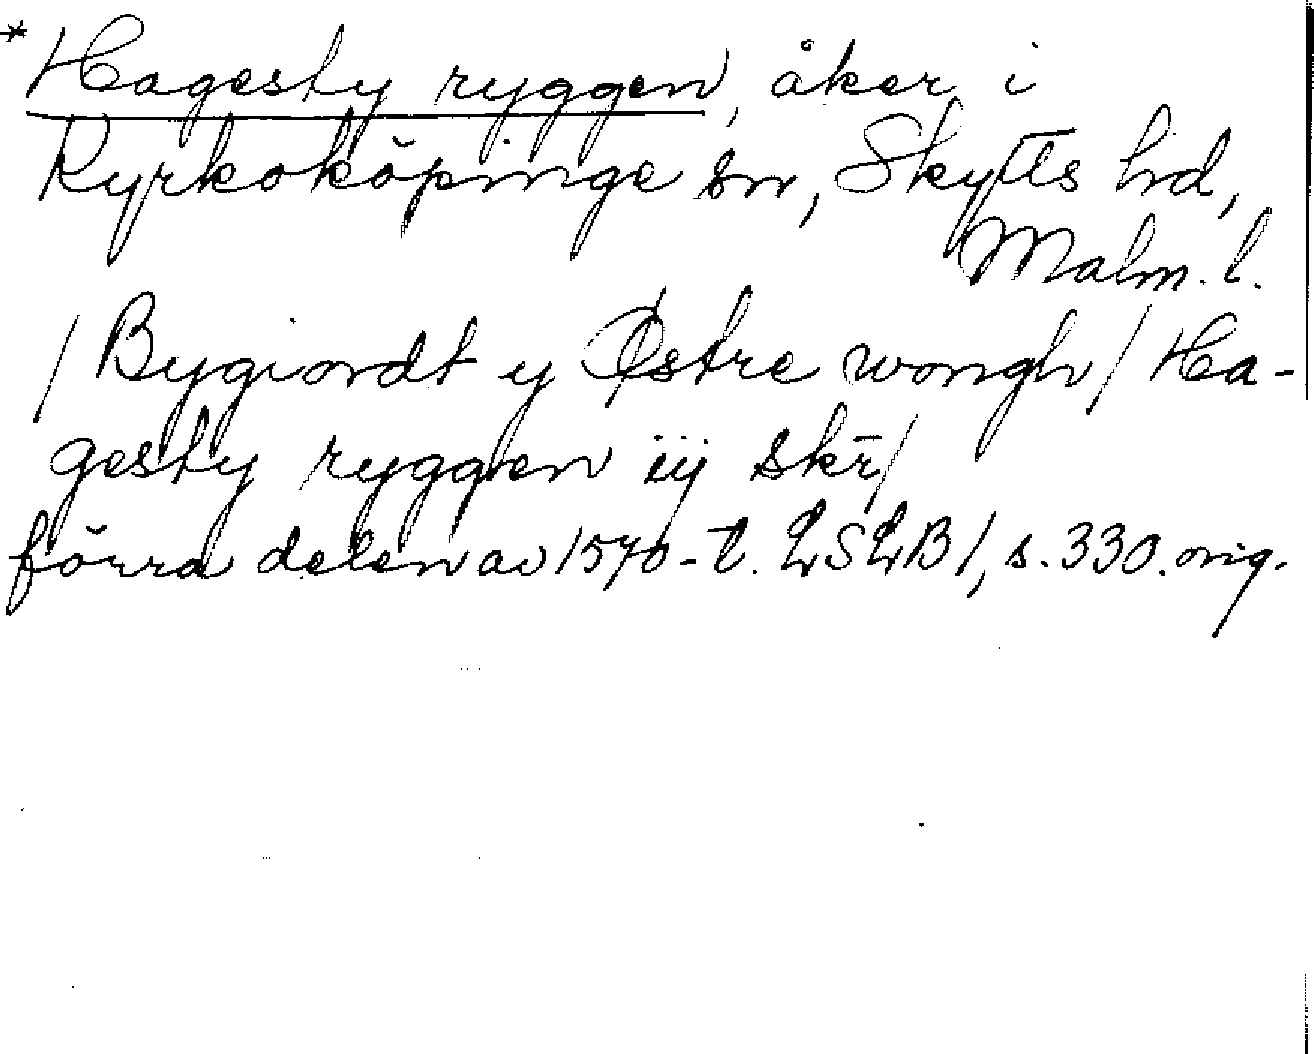 *Hagesty ryggen, åker i
Kyrkoköpinge sn, Skytts hd,
Malm. l.
/ Bygiordt y Østre wongh / Ha-
gesty ryggen iij skr̄ /
förra delen av 1570-t. LSLB 1, s. 330. orig.